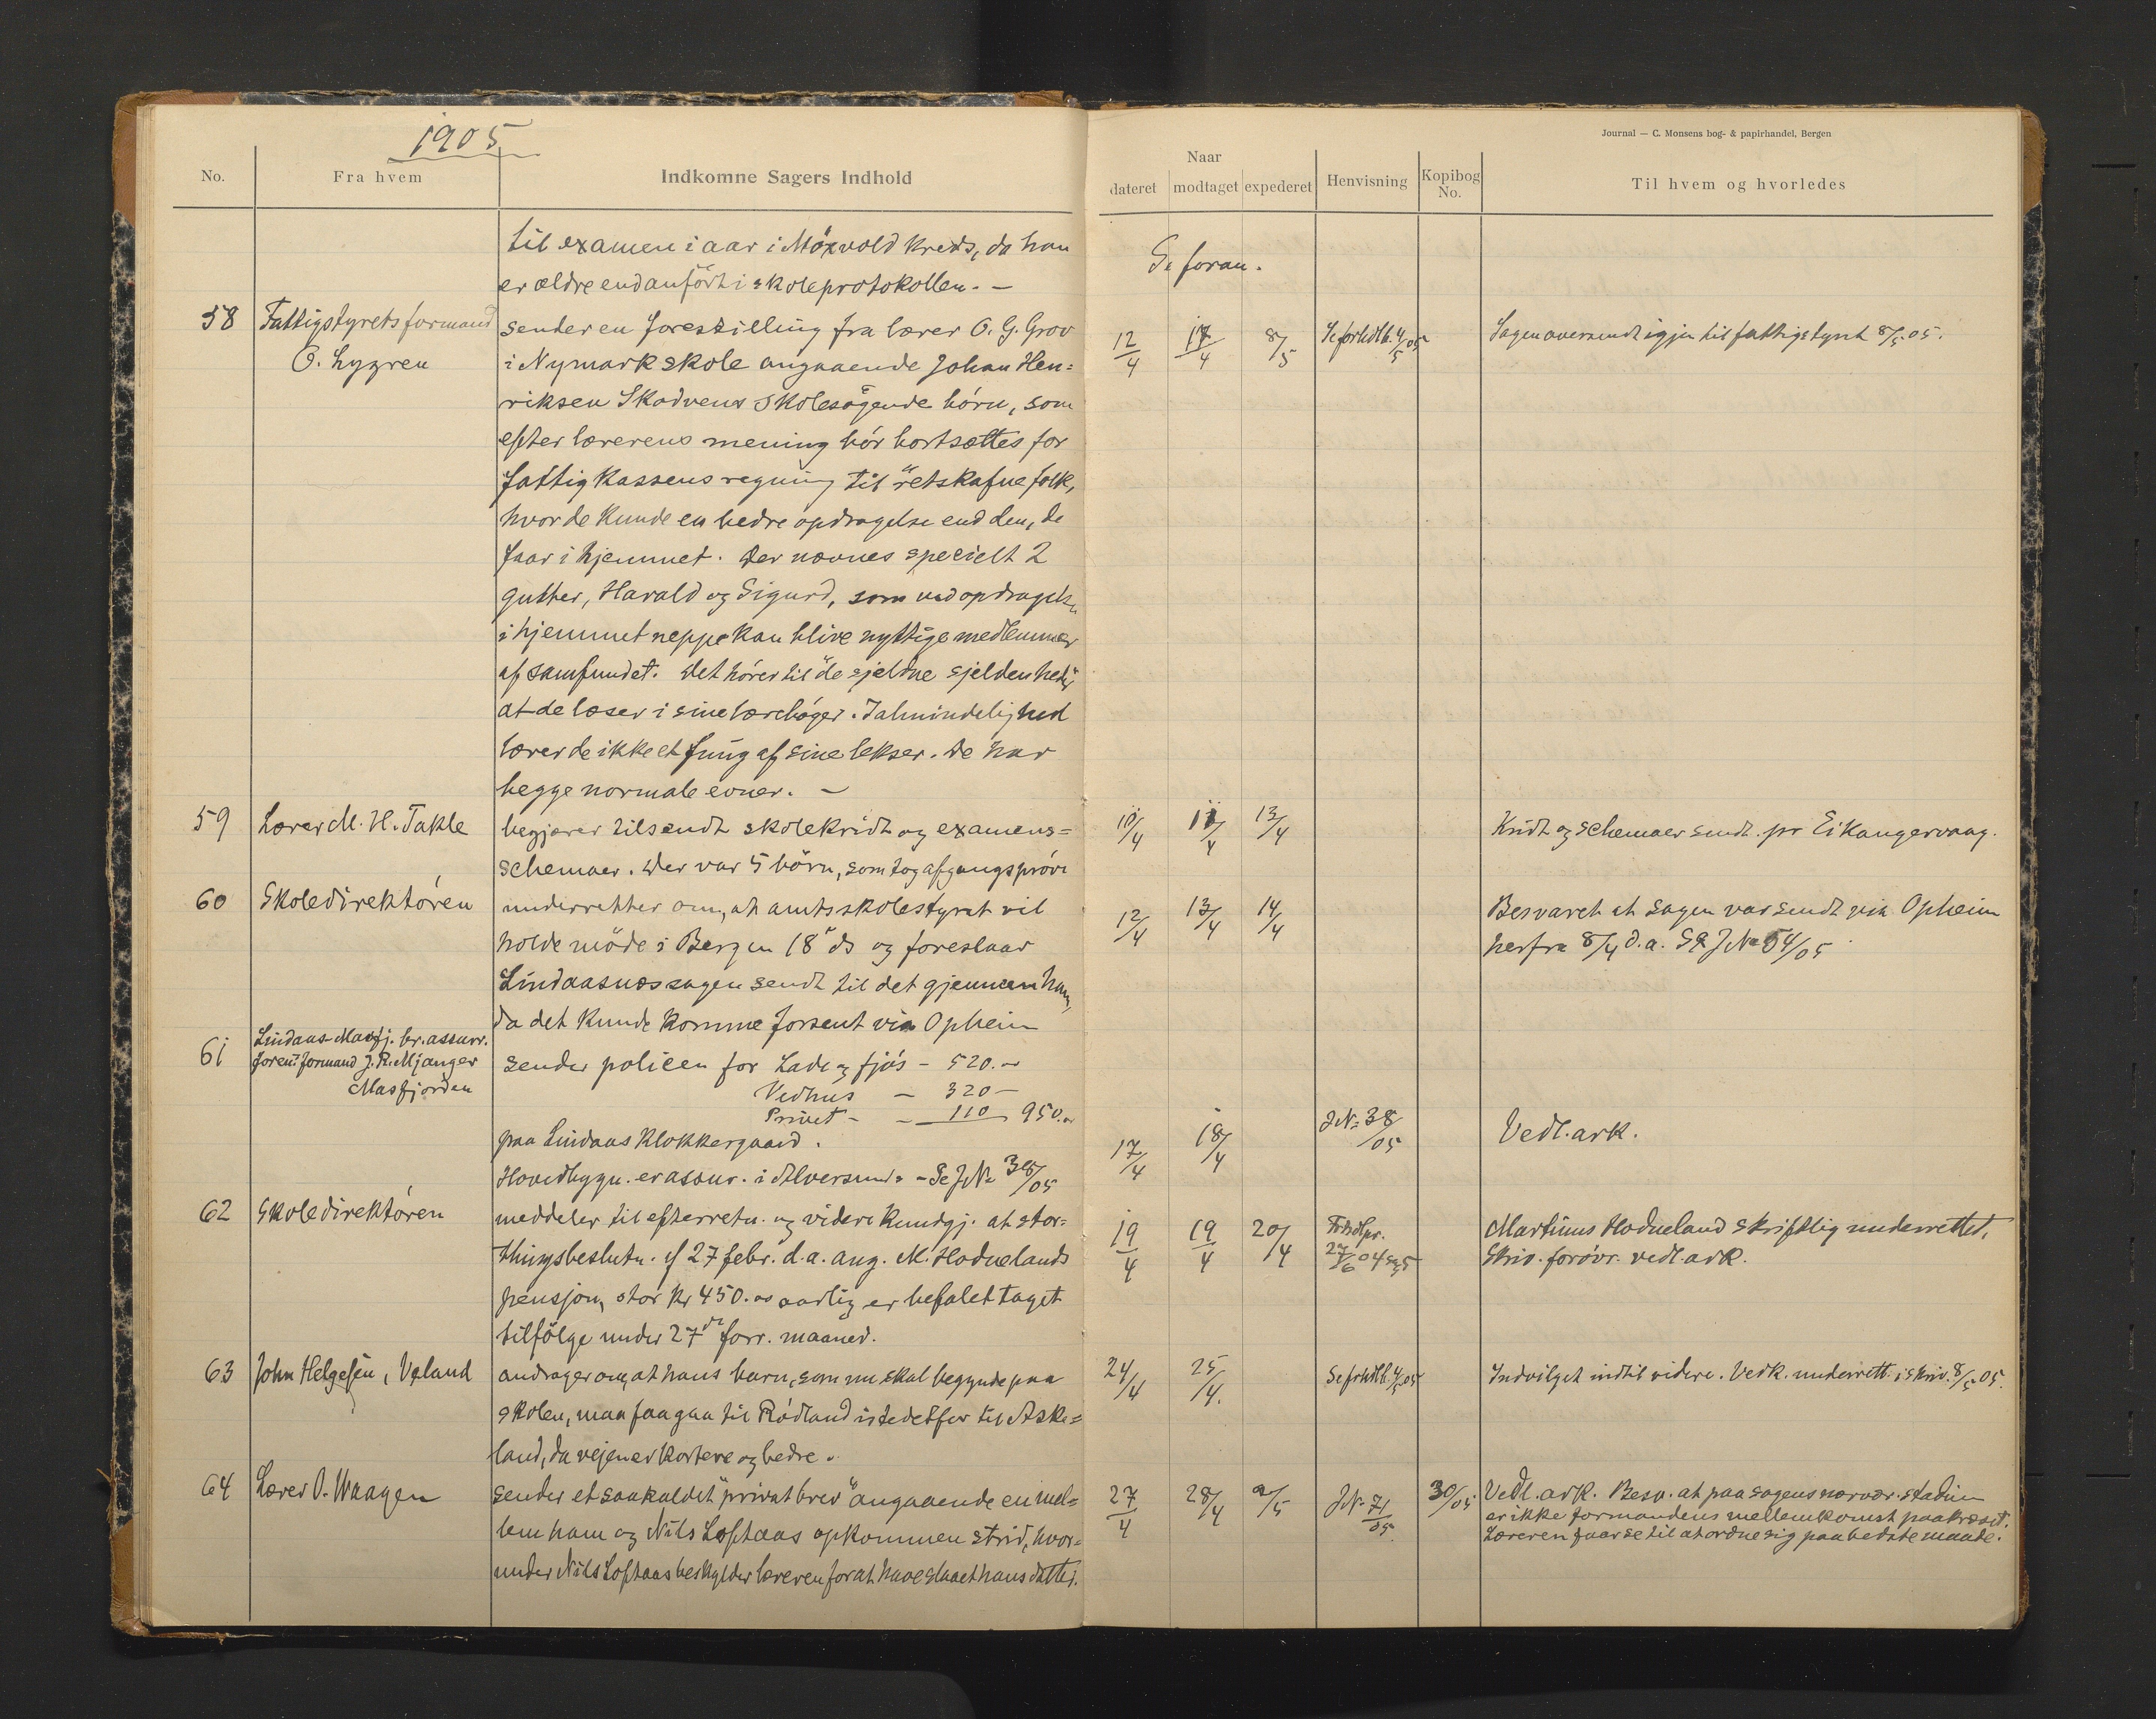 1905
No.
Fra hvem
Indkomne Sagers Indhold
til examen i aar i Möxvold kreds, da han
er ældre end anfört i skoleprotokollen. —
58
Fattigstyrets formand
O. Lygren
sender en forestilling fra lærer O. G. Grov
i Nymark skole angaaende Johan Hen=
riksen Skodvens skolesögende börn, som
efter lærerens mening bör bortsættes for
fattigkassens regning til "retskafne folk,
hvor de kunde en bedre opdragelse end den, de
faar i hjemmet. Der nævnes specielt 2
gutter, Harald og Sigurd, som ved opdragelse
i hjemmet neppe kan blive nyttige medlemmer
af samfundet. Det hörer til "de sjeldne sjeldenheder"
at de læser i sine læreböger. I almindelighed
lærer de ikke et fnug af sine lekser. De har
begge normale evner. —
59
Lærer M. H. Takle
begjærer tilsendt skolekridt og examens=
schemaer. Der var 5 börn, som tog afgangspröve
60
Skoledirektören
underretter om, at amtsskolestyret vil
holde möde i Bergen 18de ds og foreslaar
Lindaasnessagen sendt til det gjennem ham,
da det kunde komme forsent via Opheim
61
Lindaas-Masfj. br.assurr.
foren. formand J. R. Mjanger
Masfjorden
sender policen for Lade og fjös – 520.–
Vedhus – 320 –
Privet – – 110 950.–
paa Lindaas Klokkergaard.
Hovedbygn. er assur. i Alversund. – Se JN. 38/05
62
Skoledirektören
meddeler til efterretn. og videre kundgj. at stor=
thingsbeslutn. af 27 febr. d.a. ang. M. Hodnelands
pensjon, stor kr 450.00 aarlig er befalet taget
tilfölge under 27de forr. maaned.
63
John Helgesen, Veland
andrager om, at hans barn, som nu skal begynde paa
skolen, maa faa gaa til Rödland istedetfor til Aske=
land, da vejen er kortere og bedre.
64
Lærer O. Waagen
sender et saakaldet "privat brev" angaaende en mel=
lem ham og Nils Loftaas opkommen strid, hvor=
under Nils Loftaas beskylder læreren for at have slaaet hans datter.
Journal — C. Monsens bog- & papirhandel, Bergen
Naar
dateret
modtaget
expederet
Henvisning
Kopibog
No.
Til hvem og hvorledes
Se foran.
12/4
17/4
8/5
Se forhdlb. 4/5 05
Sagen oversendt igjen til fattigstyret 8/5 05.
10/4
11/4
13/4
Kridt og schemaer sendt pr Eikangervaag.
12/4
13/4
14/4
Besvaret at sagen var sendt via Opheim
herfra 8/4 d.a. Se JN. 54/05
17/4
18/4
JN. 38/05
Vedl. ark.
19/4
19/4
20/4
Martinus Hodneland skriftlig underrettet.
Skriv. forövr. vedl. ark.
24/4
25/4.
Se frhdlb. 4/5 05
Indvilget indtil videre. Vedk. underrett. i skriv. 8/5 05.
27/4
28/4
2/5
JN. 71/05
30/05
Vedl. ark. Besv. at paa sagens nærvær. stadium
er ikke formandens mellemkomst paakrævet.
Læreren faar se til at ordne sig paa bedste maade.